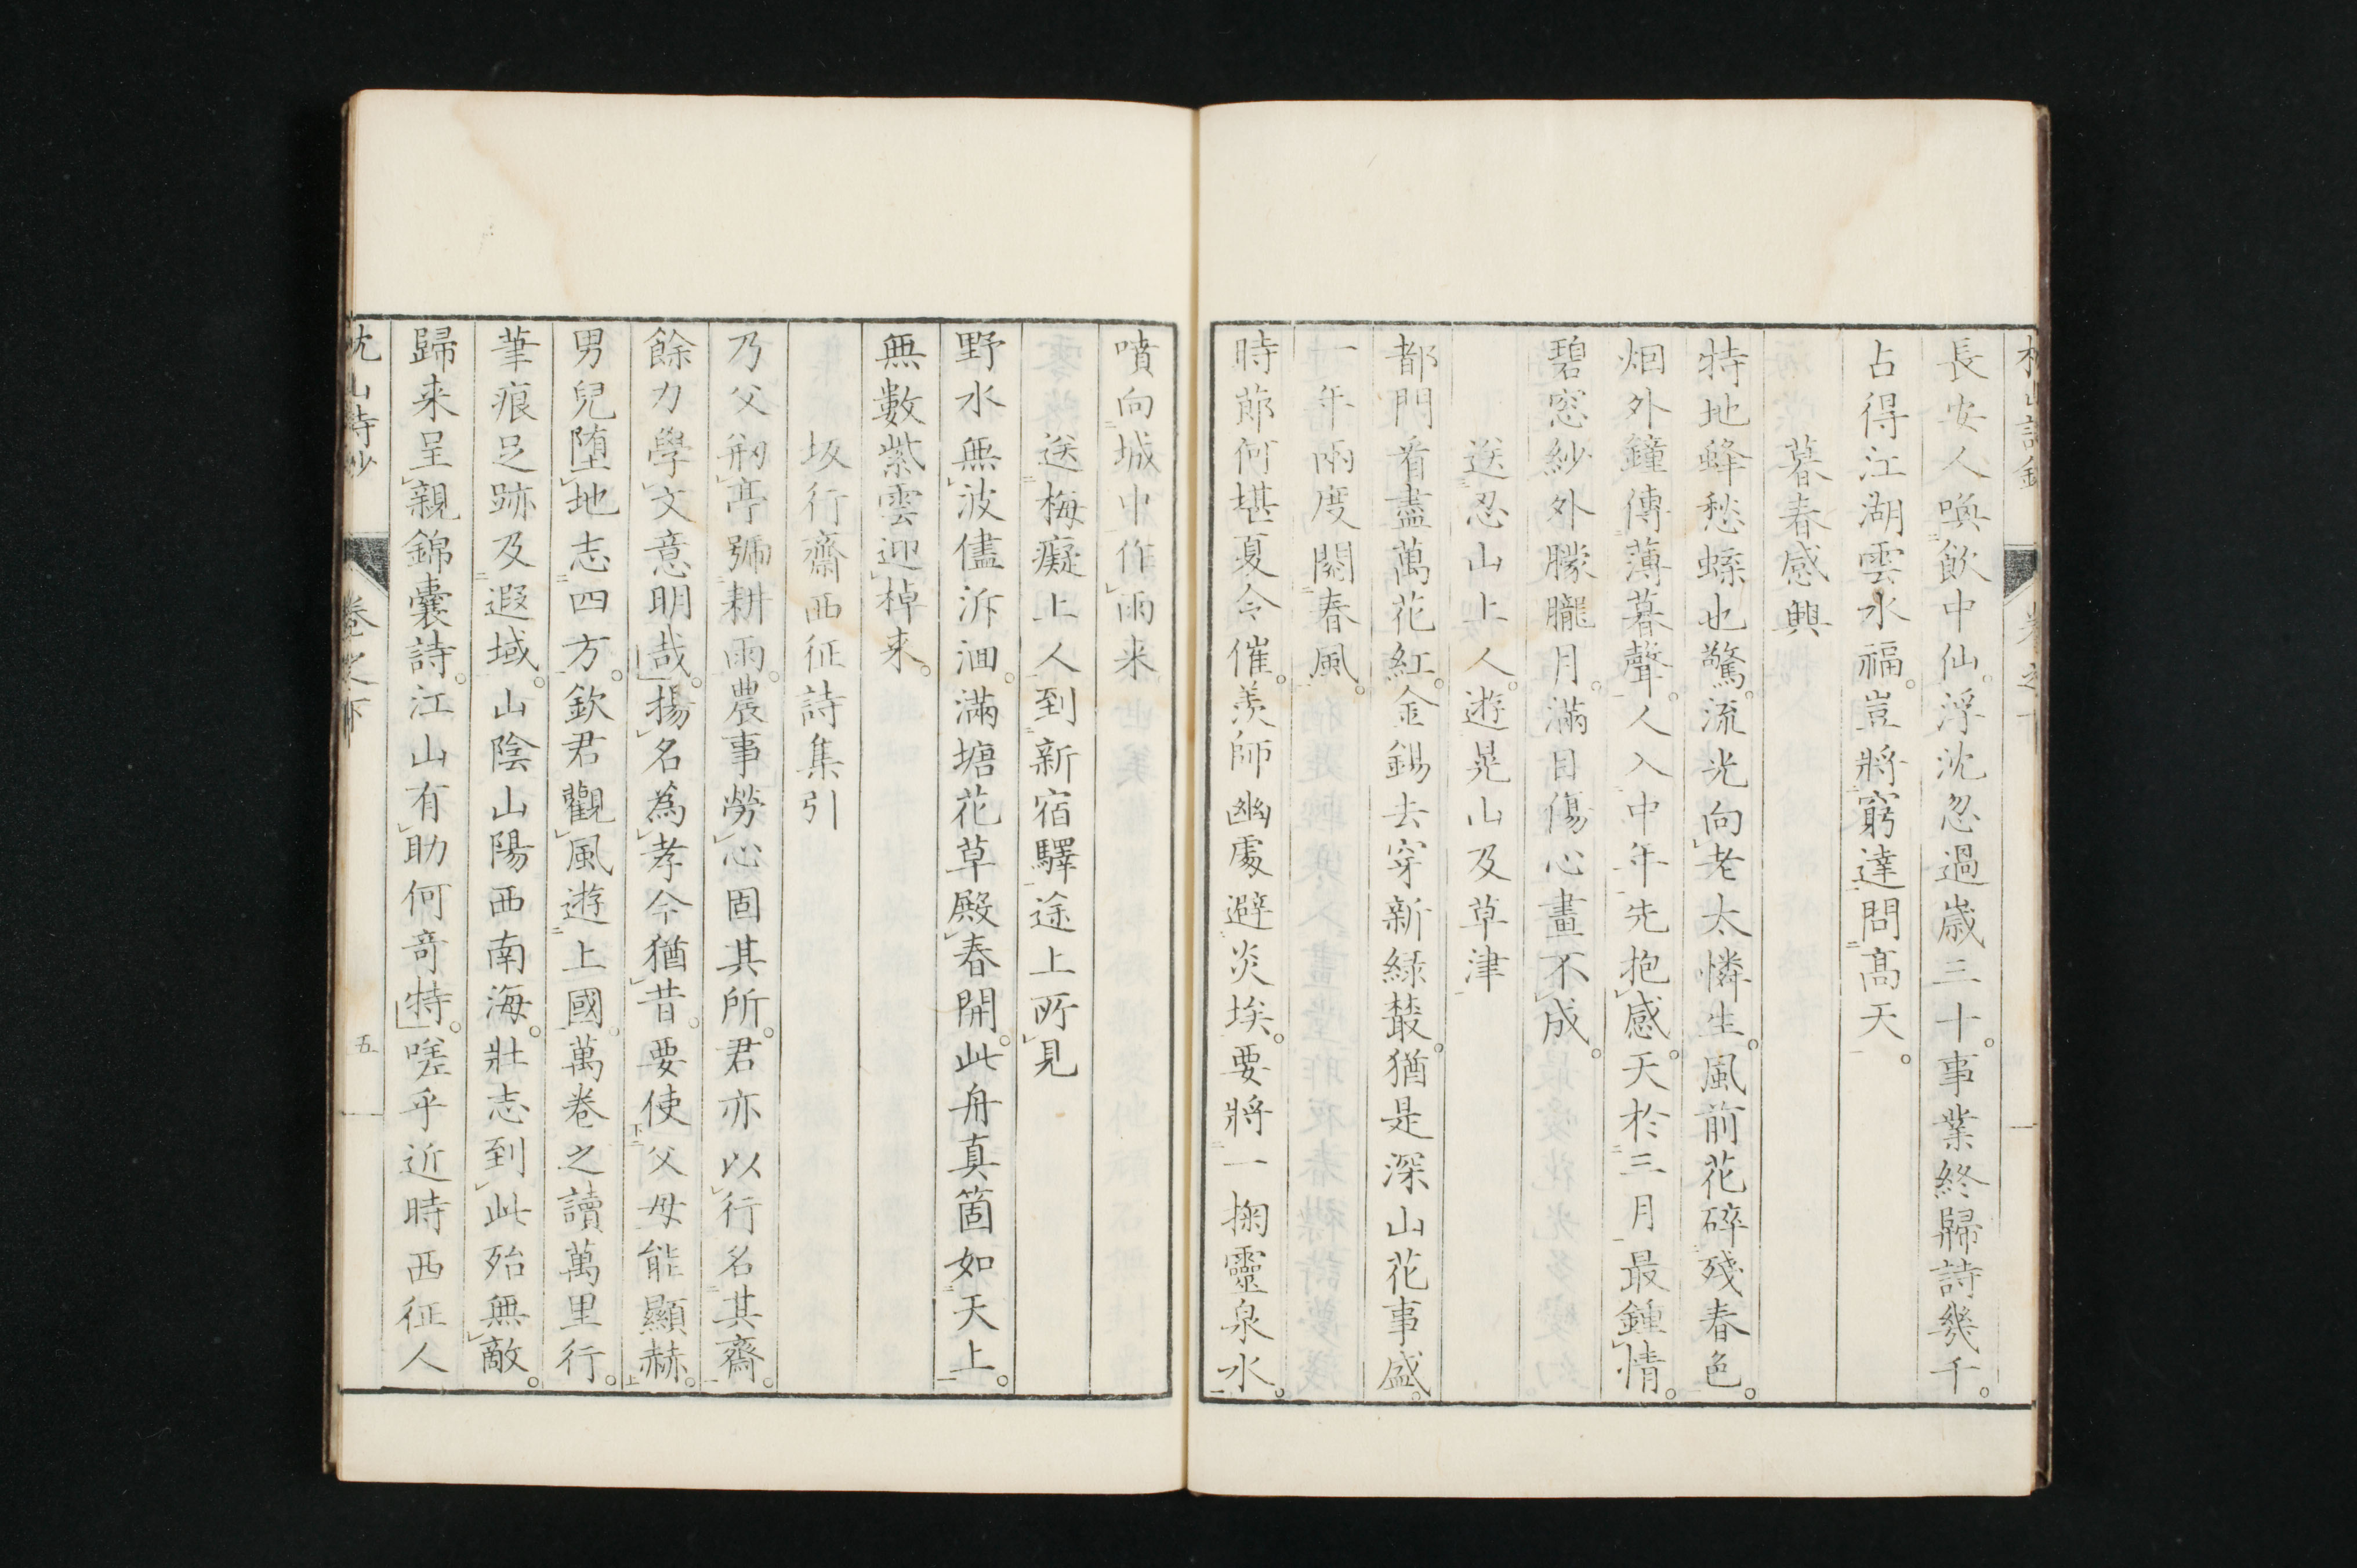 長安人喚飲中仙。浮沈忽過歳三十。事業終歸詩幾千。
占得江湖雲水福。豈將窮達問髙天。
暮春感興
特地蜂愁蝶也驚。流光向老太憐生。風前花碎殘春色。
烟外鐘傳薄暮聲。人入中年先抱感。天於三月最鍾情。
碧窓紗外朦朧月。滿目傷心畫不成。
送忍山上人。遊晃山及草津
都門看盡萬花紅。金錫去穿新緑叢。猶是深山花事盛。
一年兩度閲春風。
時節何堪夏令催。羨師幽處避炎埃。要將一掬靈泉水。
噴向城中作雨来
送梅癡上人到新宿驛途上所見
野水無波儘泝洄。滿塘花草殿春開。此舟真箇如天上。
無數紫雲迎棹来。
坂行齋西征詩集引
乃父剏亭號耕雨。農事勞心固其所。君亦以行名其齋。
餘力學文意明哉。揚名為孝今猶昔。要使父母能顯赫。
男兒墮地志四方。欽君觀風遊上國。萬卷之讀萬里行。
筆痕足跡及遐域。山陰山陽西南海。壯志到此殆無敵。
歸来呈親錦囊詩。江山有助何竒特。嗟乎近時西征人
枕山詩鈔
卷之下
五